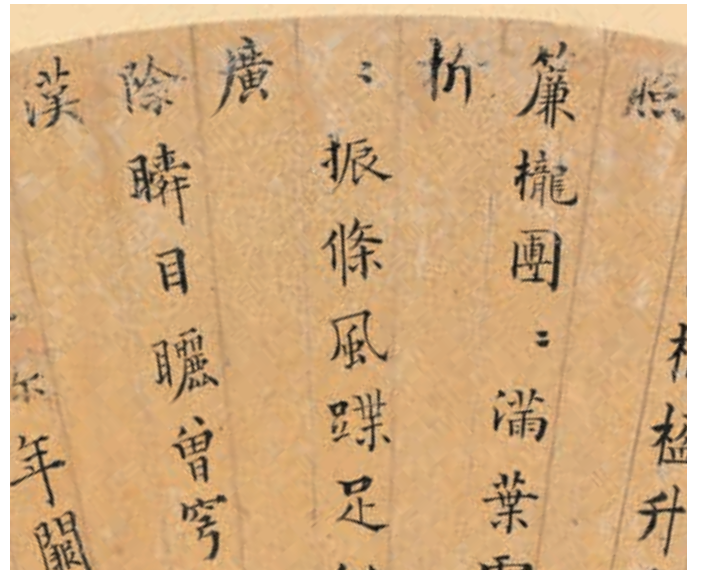 楹升
照
簾櫳團：滿葉
折
：振條風蹀足
廣
除瞬目矖曾穹
漢
年闕